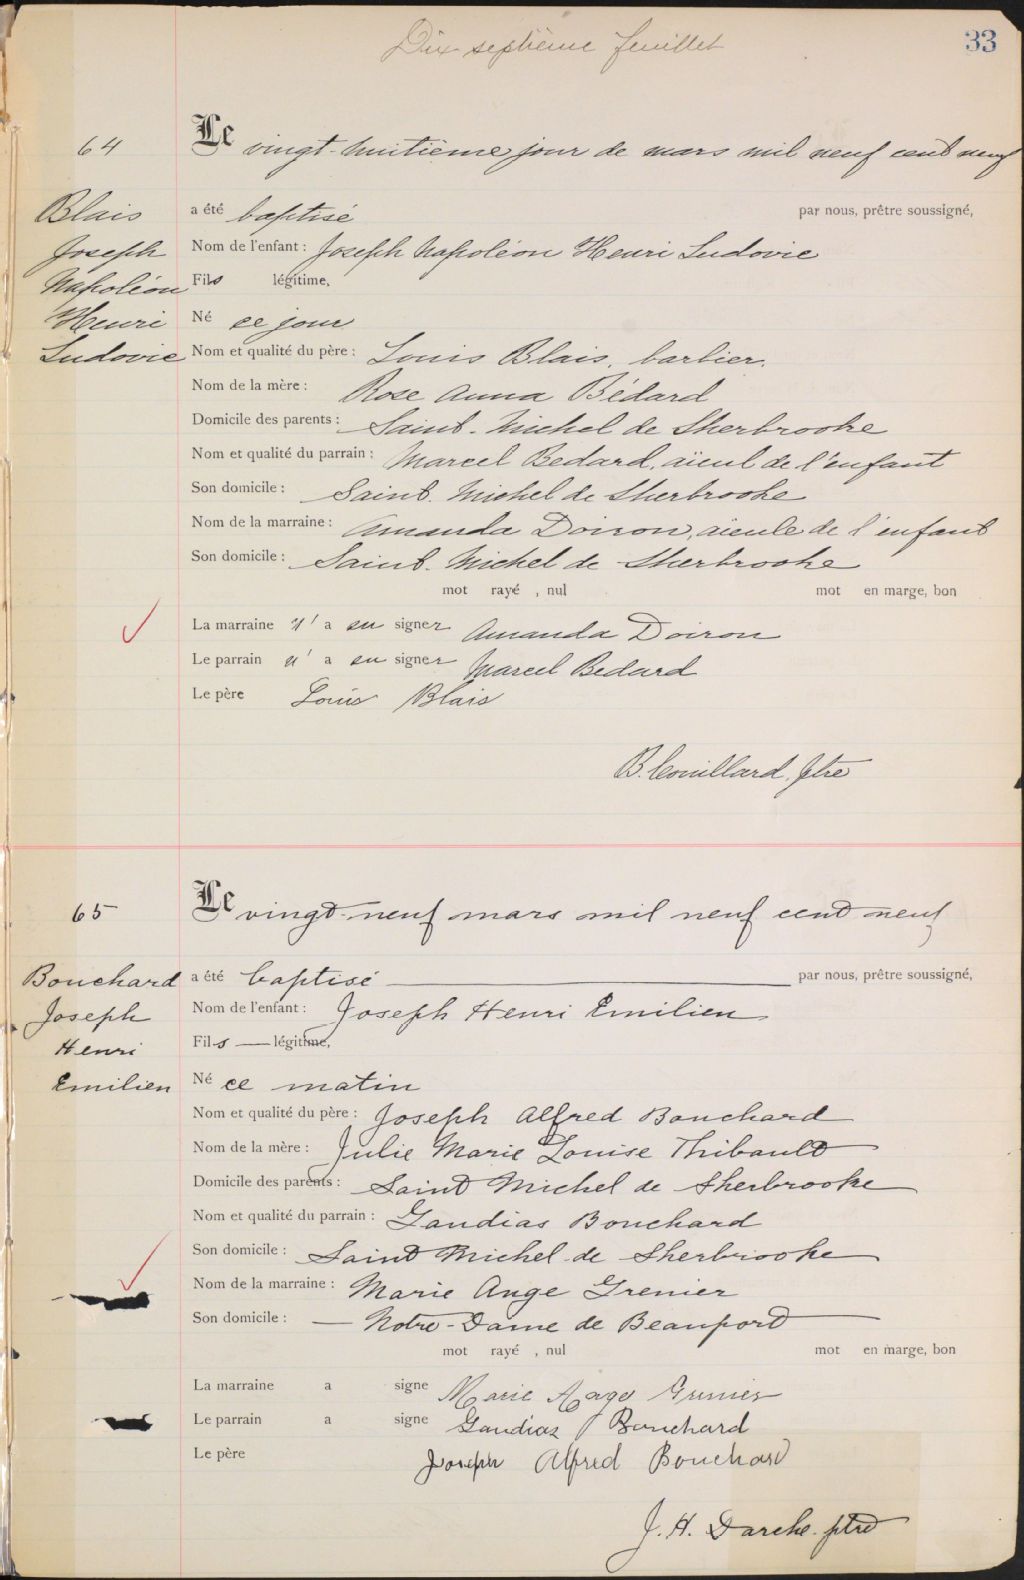 Dix septième feuillet
33
64
Le vingt-huitième jour de mars mil neuf cent neuf
Blais
Joseph
Napoléon
Henri
Ludovic
a été baptisé par nous, prêtre soussigné,
Nom de l'enfant : Joseph Napoléon Henri Ludovic
Fils légitime,
Né ce jour
Nom et qualité du père : Louis Blais, barbier.
Nom de la mère : Rose Anna Bédard
Domicile des parents : Saint-Michel de Sherbrooke
Nom et qualité du parrain : Marcel Bedard, aïeul de l'enfant
Son domicile : Saint-Michel de Sherbrooke
Nom de la marraine : Amanda Doiron, aïeule de l'enfant
Son domicile : Saint-Michel de Sherbrooke
mot rayé , nul mot en marge, bon
La marraine n' a su signer Amanda Doiron
Le parrain n' a su signer Marcel Bedard
Le père Louis Blais
B. Couillard, ptre
65
Le vingt-neuf mars mil neuf cent neuf
Bouchard
Joseph
Henri
Emilien
a été baptisé par nous, prêtre soussigné,
Nom de l'enfant : Joseph Henri Emilien
Fils légitime,
Né ce matin
Nom et qualité du père : Joseph Alfred Bouchard
Nom de la mère : Julie Marie Louise Thibault
Domicile des parents : Saint Michel de Sherbrooke
Nom et qualité du parrain : Gaudias Bouchard
Son domicile : Saint Michel de Sherbrooke
Nom de la marraine : Marie Ange Grenier
Son domicile : Notre-Dame de Beauport
mot rayé , nul mot en marge, bon
La marraine a signé Marie Ange Grenier
Le parrain a signé Gaudias Bouchard
Le père Joseph Alfred Bouchard
J. H. Darche ptre